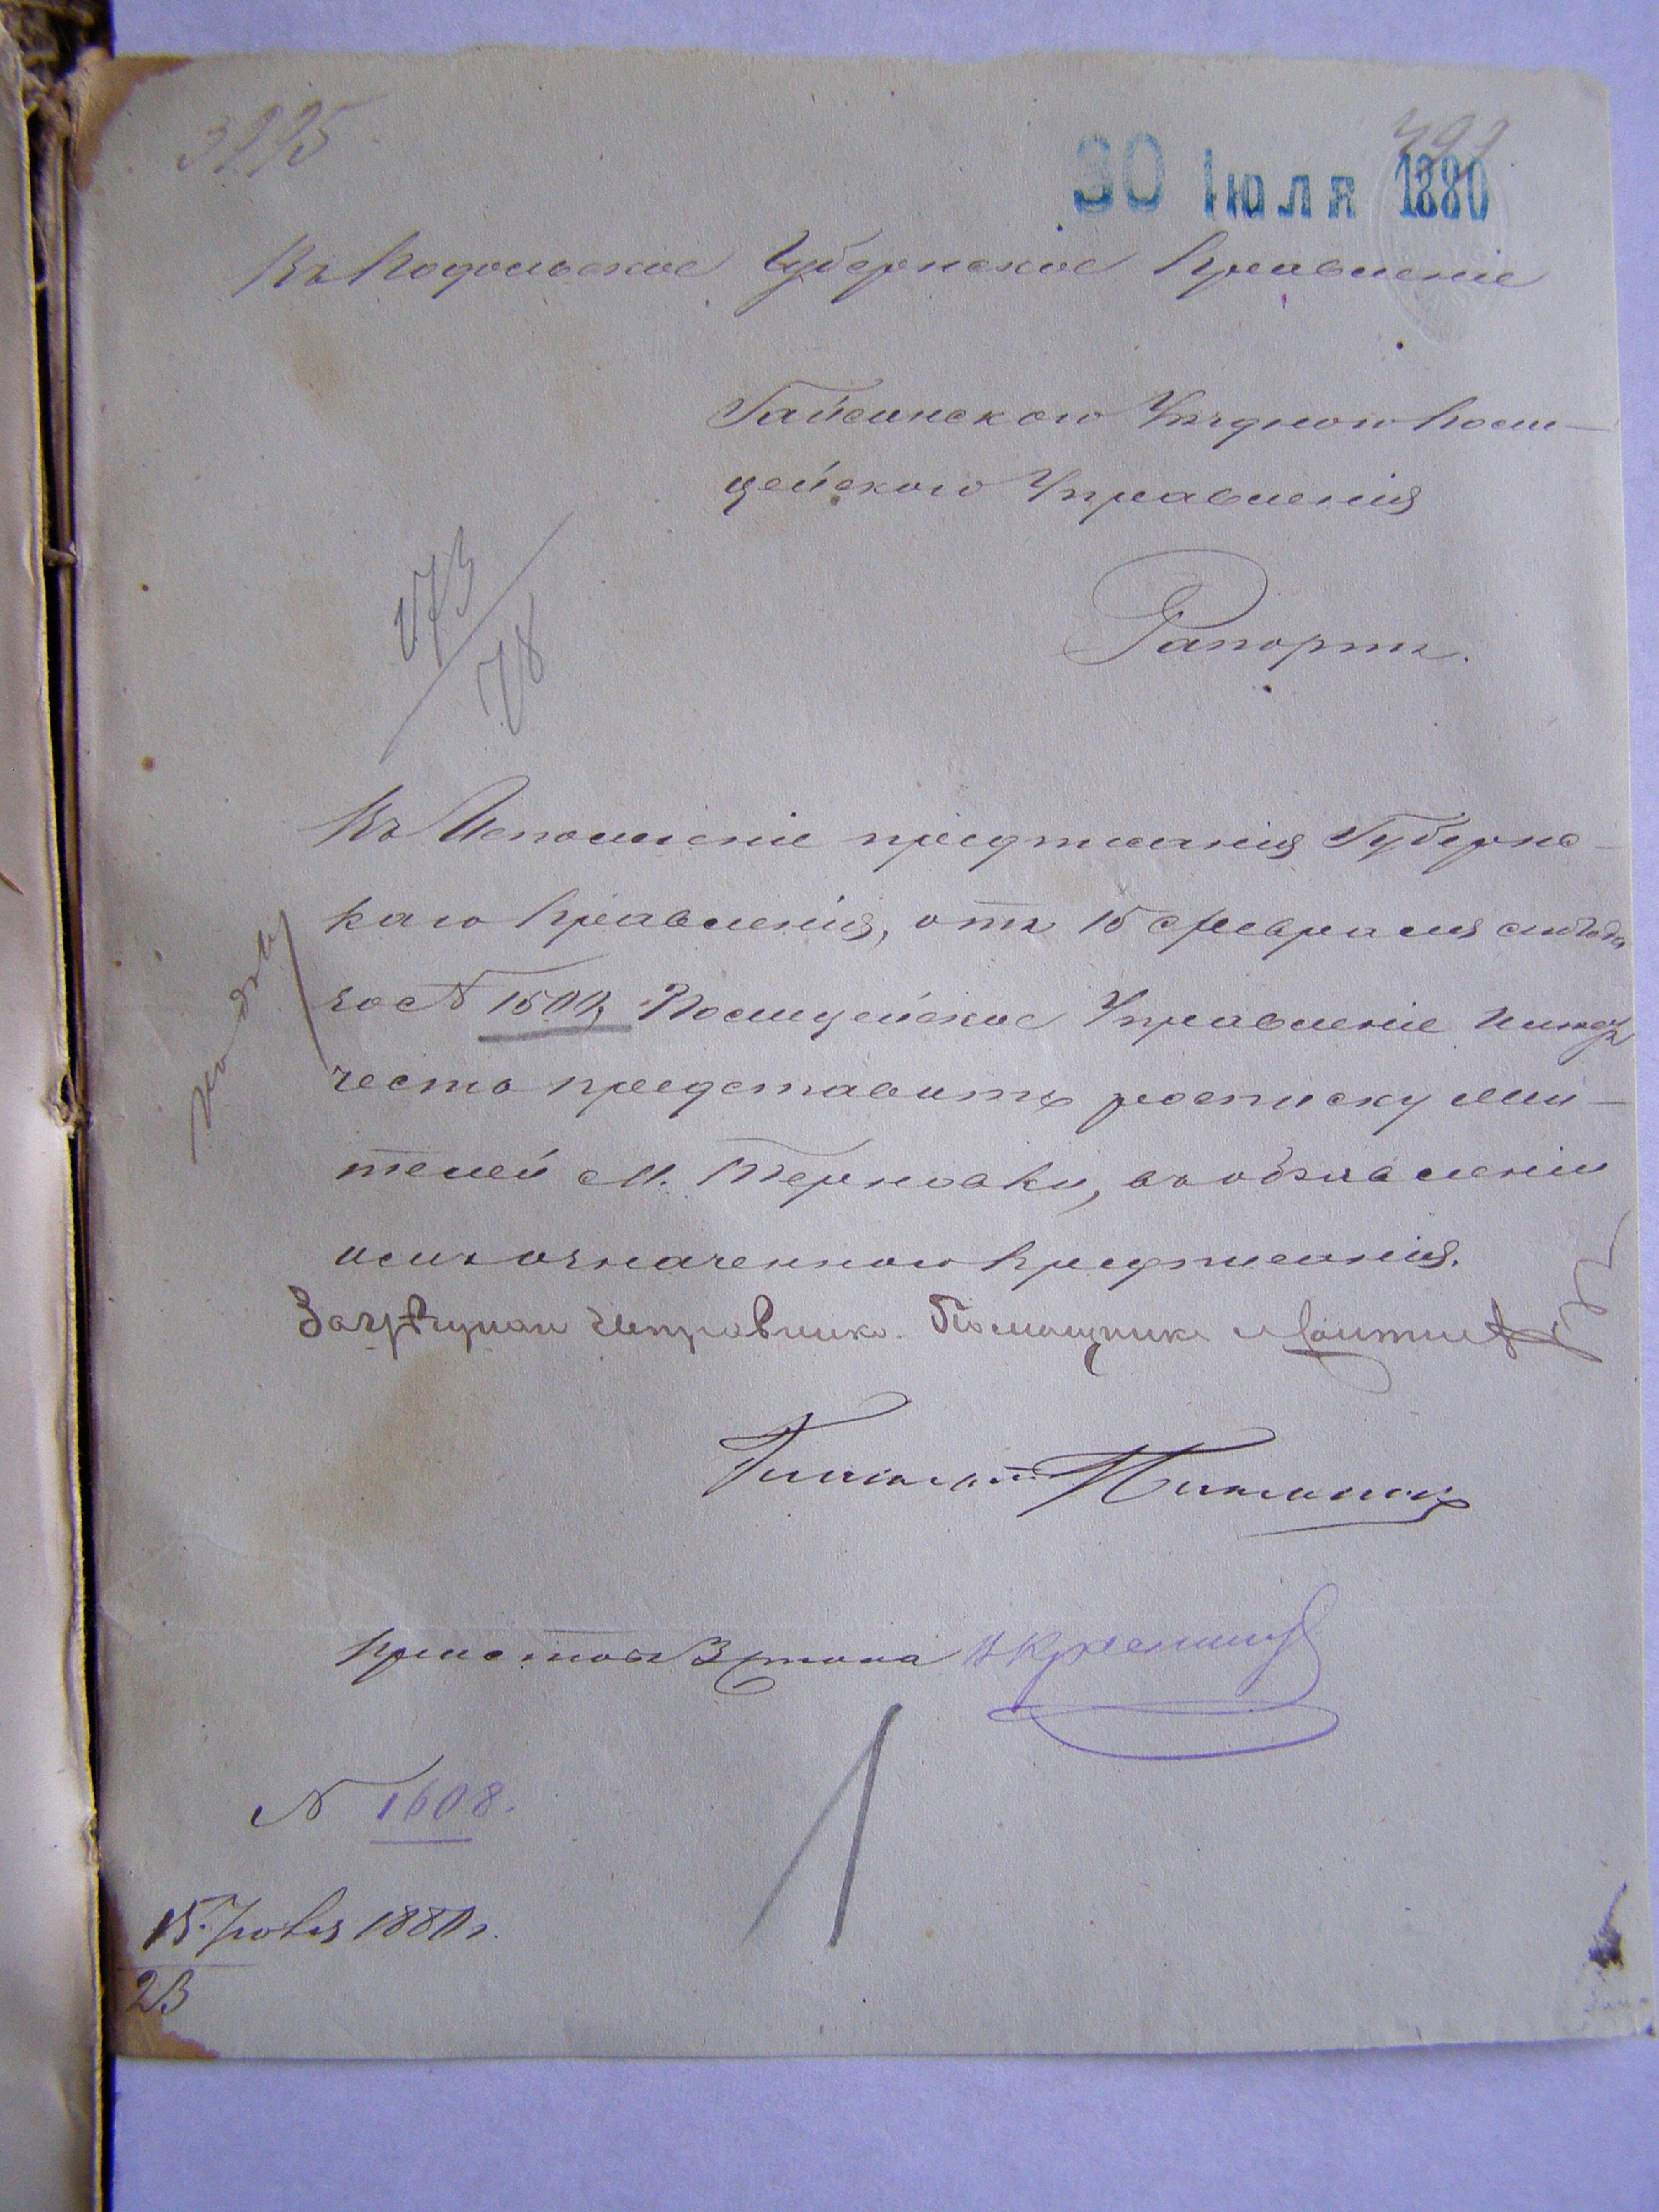 3225
30 Іюля 1880
Въ Подольское Губернское Правленіе
Гайсинского Уѣзднаго Поли-
цейского Управленія
173/78
Рапортъ.
Въ Исполненіе предписанія Губернс-
каго Правленія, отъ 15 Февраля сего года
за № 1500, Полицейское Управленіе имѣетъ
честь представить росписку жи-
телей м. Терновки, въ объявленіи
имъ означенного предписанія.
къ дѣлу
За Исправника Помощникъ
Приставъ 3 стана
№ 1608.
15 Іюля 1880 г.
23